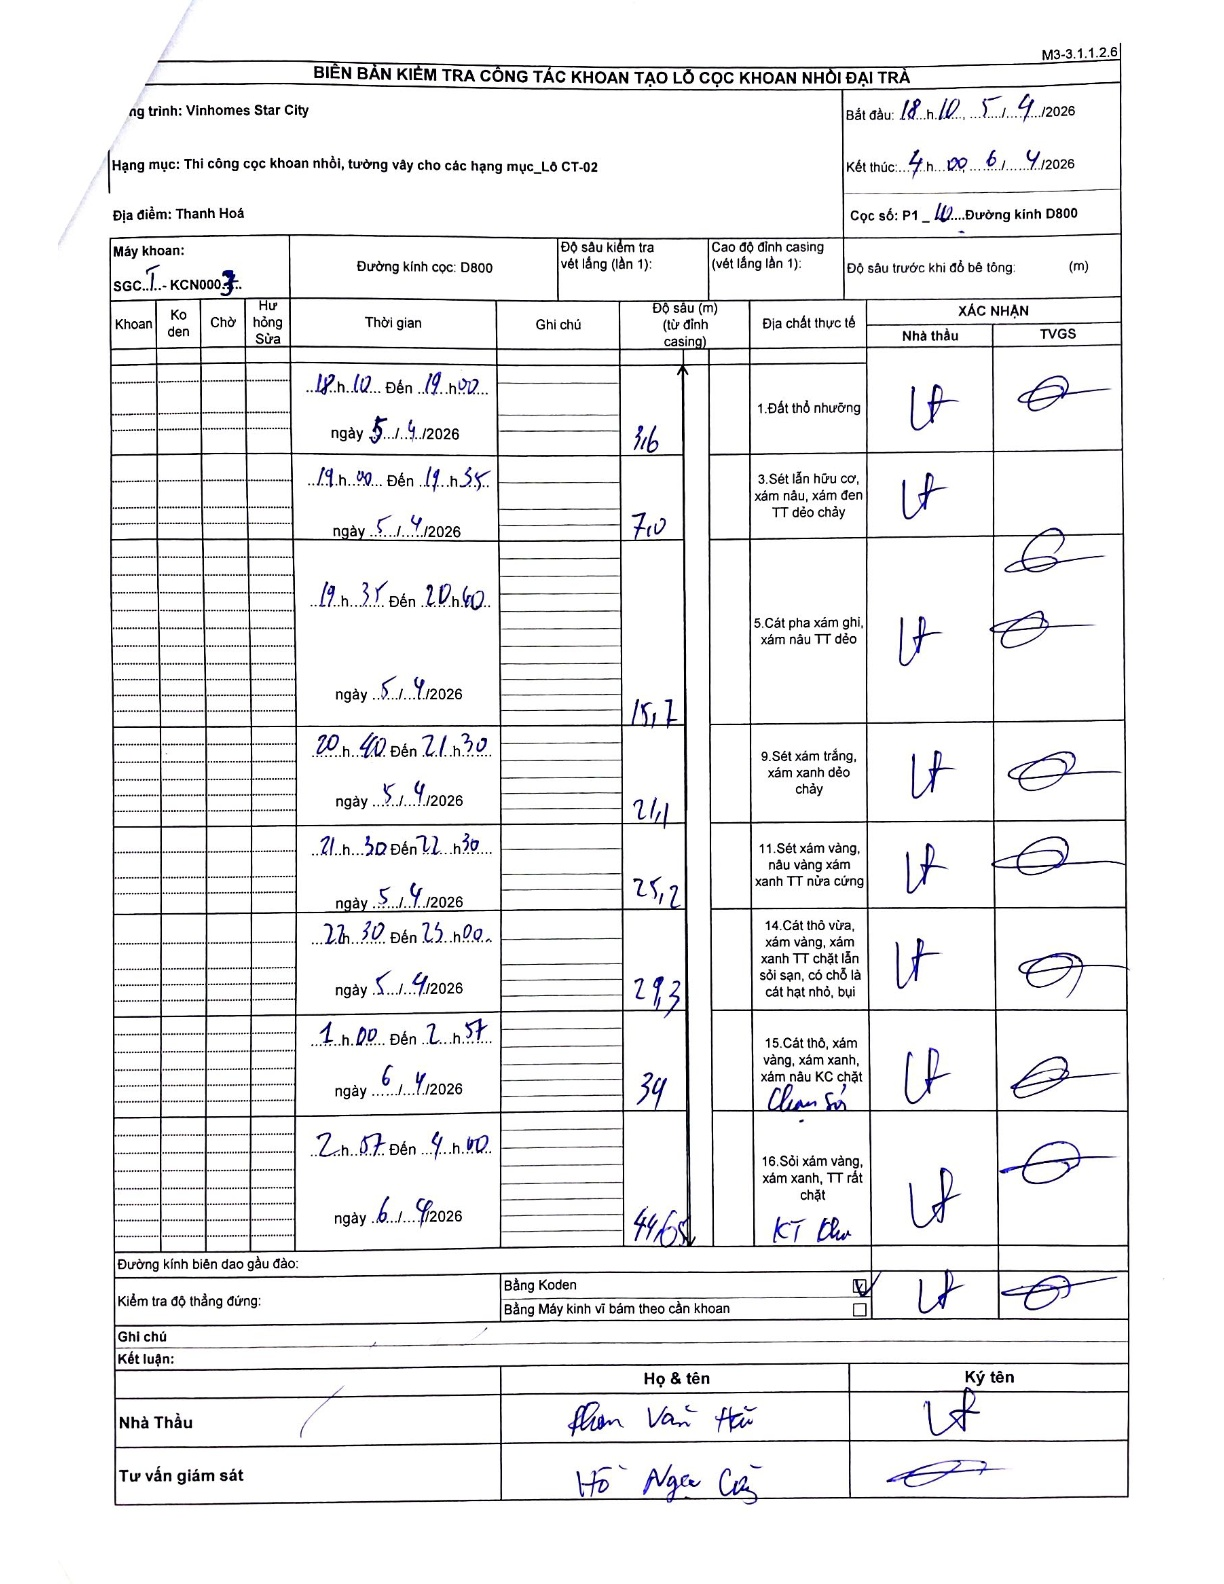 M3-3.1.1.2.6
BIÊN BẢN KIỂM TRA CÔNG TÁC KHOAN TẠO LỖ CỌC KHOAN NHỒI ĐẠI TRÀ
ng trình: Vinhomes Star City
Bắt đầu: 18 h 10, 5 / 4 /2026
Hạng mục: Thi công cọc khoan nhồi, tường vây cho các hạng mục_Lô CT-02
Kết thúc: 4 h 00, 6 / 4 /2026
Địa điểm: Thanh Hoá
Cọc số: P1 _ 10 Đường kính D800
Máy khoan:
SGC I - KCN0003
Đường kính cọc: D800
Độ sâu kiểm tra
vét lắng (lần 1):
Cao độ đỉnh casing
(vét lắng lần 1):
Độ sâu trước khi đổ bê tông: (m)
Khoan
Ko
den
Chờ
Hư
hỏng
Sửa
Thời gian
Ghi chú
Độ sâu (m)
(từ đỉnh
casing)
Địa chất thực tế
XÁC NHẬN
Nhà thầu
TVGS
18 h 10 Đến 19 h 00
ngày 5 / 4 /2026
3,6
1.Đất thổ nhưỡng
19 h 00 Đến 19 h 35
ngày 5 / 4 /2026
7,0
3.Sét lẫn hữu cơ,
xám nâu, xám đen
TT dẻo chảy
19 h 35 Đến 20 h 40
ngày 5 / 4 /2026
15,7
5.Cát pha xám ghi,
xám nâu TT dẻo
20 h 40 Đến 21 h 30
ngày 5 / 4 /2026
21,1
9.Sét xám trắng,
xám xanh dẻo
chảy
21 h 30 Đến 22 h 30
ngày 5 / 4 /2026
25,2
11.Sét xám vàng,
nâu vàng xám
xanh TT nửa cứng
22 h 30 Đến 23 h 00
ngày 5 / 4 /2026
29,3
14.Cát thô vừa,
xám vàng, xám
xanh TT chặt lẫn
sỏi sạn, có chỗ là
cát hạt nhỏ, bụi
1 h 00 Đến 2 h 57
ngày 6 / 4 /2026
39
15.Cát thô, xám
vàng, xám xanh,
xám nâu KC chặt
2 h 57 Đến 4 h 00
ngày 6 / 4 /2026
44,65
16.Sỏi xám vàng,
xám xanh, TT rất
chặt
KT
Đường kính biên dao gầu đào:
Kiểm tra độ thẳng đứng:
Bằng Koden
Bằng Máy kinh vĩ bám theo cần khoan
Ghi chú
Kết luận:
Họ & tên
Ký tên
Nhà Thầu
Phan Văn
Tư vấn giám sát
Hồ Ngọc